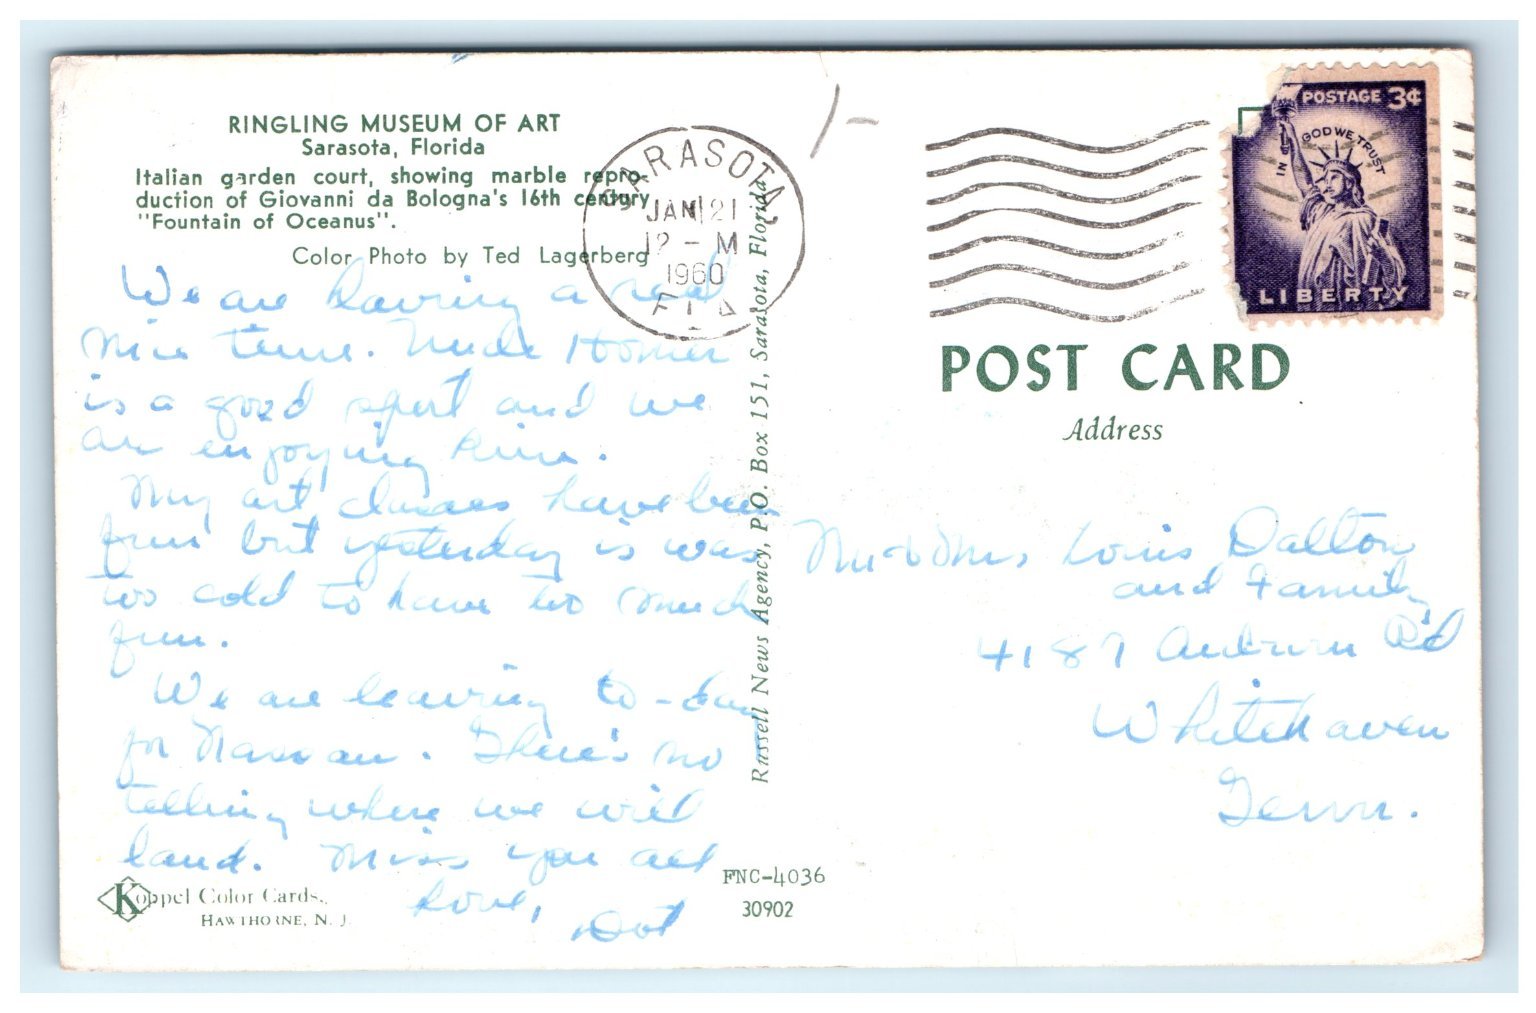 RINGLING MUSEUM OF ART
Sarasota, Florida
Italian garden court, showing marble repro-
duction of Giovanni da Bologna's 16th century
"Fountain of Oceanus".
Color Photo by Ted Lagerberg
We are having a real
nice time. Uncle Homer
is a good sport and we
are enjoying him.
My art classes have been
fun but yesterday is was
too cold to have too much
fun.
We are leaving to-day
for Nassau. There's no
telling where we will
land. Miss you all
Love,
Dot
Koppel Color Cards,
HAWTHORNE, N. J.
FNC-4036
30902
Russell News Agency, P.O. Box 151, Sarasota, Florida
SARASOTA,
JAN 21
12 - M
1960
FLA
POSTAGE 3¢
IN GOD WE TRUST
LIBERTY
POST CARD
Address
Mr & Mrs Louis Dalton
and Family
4187 Auburn Rd
Whitehaven
Tenn.